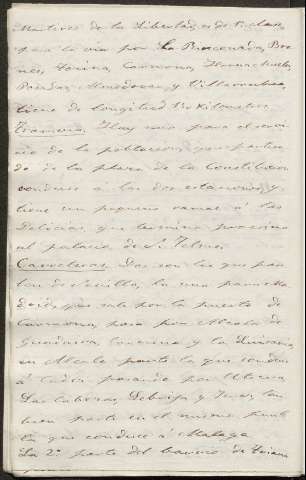 Martires de la Libertad, es de 1ª clase,
para la via por La Rinconada, Bre
nes, Tocina, Carmona, Hornachuelos,
Posadas, Almodovar, y Villarrubia,
tiene de longitud 130 Kilometros.
Tramvia. Hay uno para el servi
cio de la poblacion, que partien
do de la plaza de la Constitucion
conduce á las dos estaciones y
tiene un pequeño ramal á las
Delicias, que termina proximo
al palacio de S. Telmo.
Carreteras. Dos son las que par
ten de Sevilla, la una para Ma
drid, que sale por la puerta de
Carmona, pasa por Alcalá de
Guadaira, Carmona y La Luisiana,
en Alcalá parte la que conduce
á Cadiz pasando por Utrera,
Las Cabezas, Lebrija y Jerez, tam
bien parte en el mismo punto
la que conduce á Malaga.
La 2ª parte del barrio de Triana